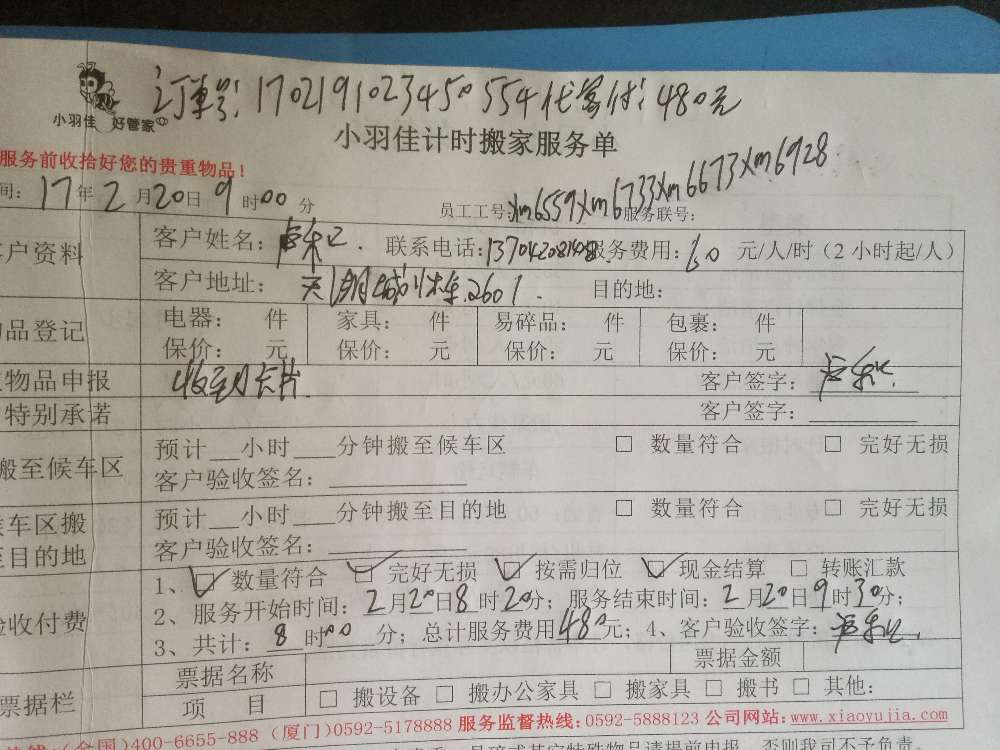 订单号:170219102345054代客付:480元
小羽佳 好管家
小羽佳计时搬家服务单
服务前收拾好您的贵重物品!
间:17年2月20日9时00分 员工工号:xm6559xm6733xm6673xm6928 服务联号:
客户资料 客户姓名: 联系电话: 服务费用:60元/人/时(2小时起/人)
客户地址: 2601. 目的地:
品登记 电器: 件 家具: 件 易碎品: 件 包裹: 件
保价: 元 保价: 元 保价: 元 保价: 元
物品申报 收到卡片 客户签字:
特别承诺 客户签字:
搬至候车区 预计__小时___分钟搬至候车区 □ 数量符合 □ 完好无损
客户验收签名:
车区搬至目的地 预计__小时___分钟搬至目的地 □ 数量符合 □ 完好无损
客户验收签名:
验收付费 1、☑ 数量符合 ☑ 完好无损 ☑ 按需归位 ☑ 现金结算 □ 转账汇款
2、服务开始时间:2月20日8时20分;服务结束时间:2月20日9时30分;
3、共计:8时00分;总计服务费用480元;4、客户验收签字:
票据栏 票据名称 票据金额
项目 □ 搬设备 □ 搬办公家具 □ 搬家具 □ 搬书 □ 其他:
热线:(全国)400-6655-888 (厦门)0592-5178888 服务监督热线:0592-5888123 公司网站:www.xiaoyujia.com